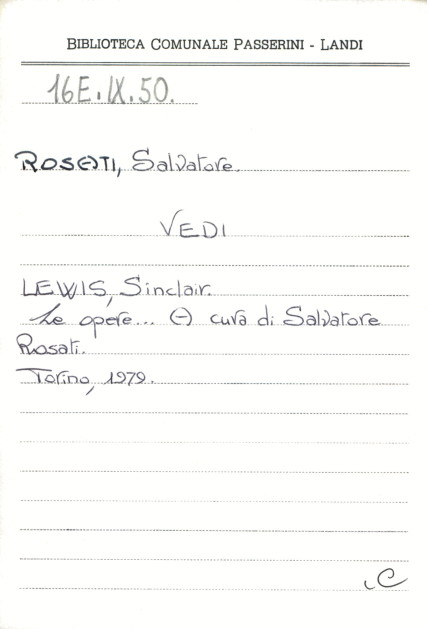 BIBLIOTECA COMUNALE PASSERINI - LANDI
16E.IX.50.
ROSATI, Salvatore.
VEDI
LEWIS, Sinclair.
Le opere... A cura di Salvatore
Rosati.
Torino, 1979.
C